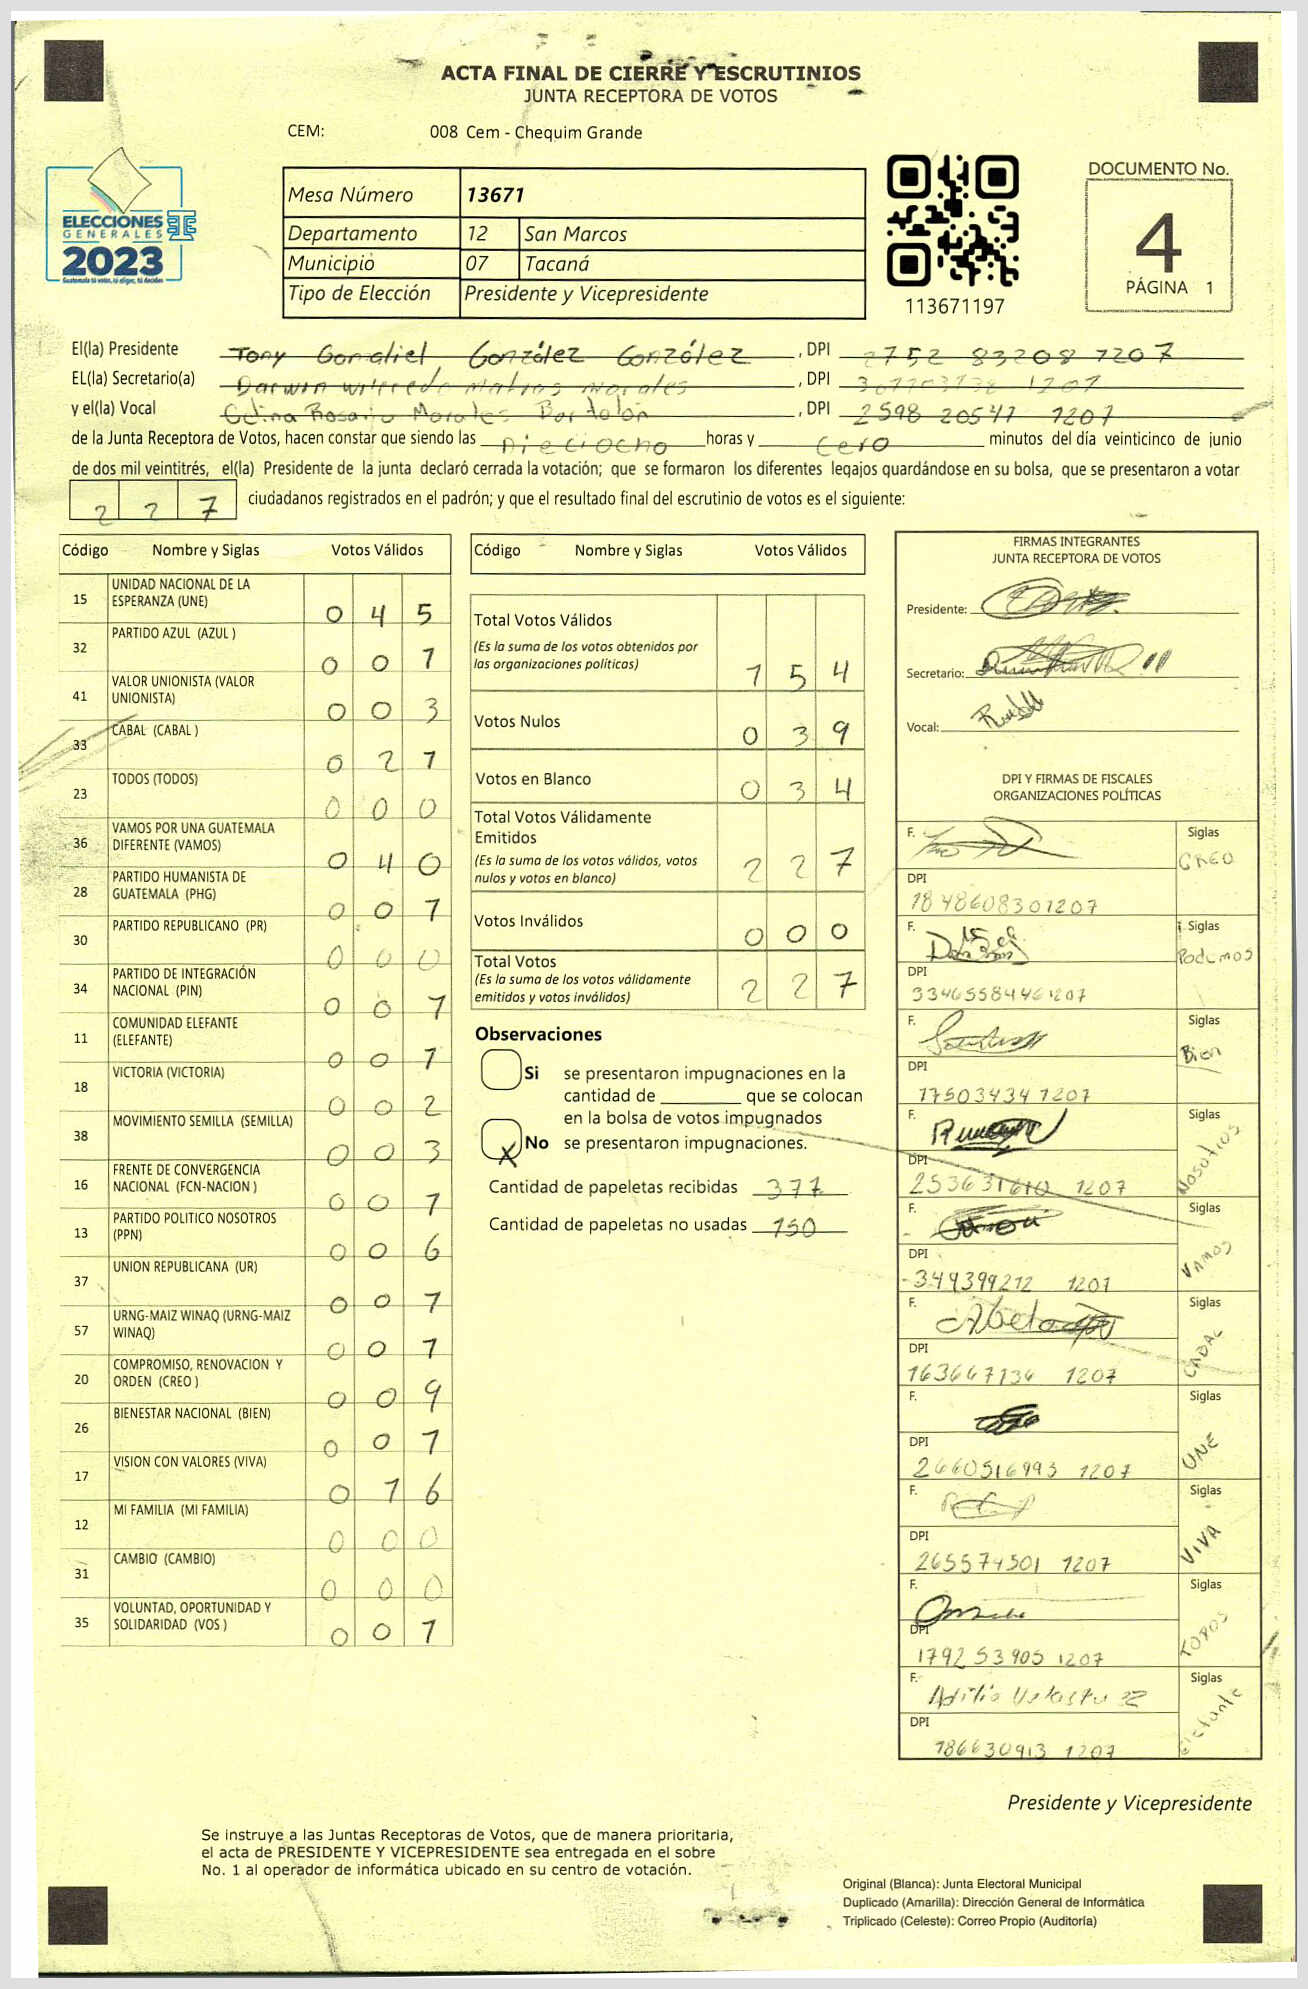 ACTA FINAL DE CIERRE Y ESCRUTINIOS
JUNTA RECEPTORA DE VOTOS
CEM: 008 Cem - Chequim Grande
ELECCIONES
GENERALES
2023
Guatemala tú votas, tú eliges, tú decides
Mesa Número 13671
Departamento 12 San Marcos
Municipio 07 Tacaná
Tipo de Elección Presidente y Vicepresidente
113671197
DOCUMENTO No.
4
PÁGINA 1
El(la) Presidente Tony Gamaliel González González, DPI 2752 83208 1207
EL(la) Secretario(a) Darwin Wilfredo Matias Morales, DPI 1207
y el(la) Vocal Celina Rosario Morales Bartolón, DPI 2598 20547 1207
de la Junta Receptora de Votos, hacen constar que siendo las Dieciocho horas y cero minutos del día veinticinco de junio
de dos mil veintitrés, el(la) Presidente de la junta declaró cerrada la votación; que se formaron los diferentes legajos quardándose en su bolsa, que se presentaron a votar
227 ciudadanos registrados en el padrón; y que el resultado final del escrutinio de votos es el siguiente:
Código Nombre y Siglas Votos Válidos
15 UNIDAD NACIONAL DE LA ESPERANZA (UNE) 0 4 5
32 PARTIDO AZUL (AZUL ) 0 0 1
41 VALOR UNIONISTA (VALOR UNIONISTA) 0 0 3
33 CABAL (CABAL ) 0 2 1
23 TODOS (TODOS) 0 0 0
36 VAMOS POR UNA GUATEMALA DIFERENTE (VAMOS) 0 4 0
28 PARTIDO HUMANISTA DE GUATEMALA (PHG) 0 0 1
30 PARTIDO REPUBLICANO (PR) 0 0 0
34 PARTIDO DE INTEGRACIÓN NACIONAL (PIN) 0 0 1
11 COMUNIDAD ELEFANTE (ELEFANTE) 0 0 1
18 VICTORIA (VICTORIA) 0 0 2
38 MOVIMIENTO SEMILLA (SEMILLA) 0 0 3
16 FRENTE DE CONVERGENCIA NACIONAL (FCN-NACION ) 0 0 1
13 PARTIDO POLITICO NOSOTROS (PPN) 0 0 6
37 UNION REPUBLICANA (UR) 0 0 1
57 URNG-MAIZ WINAQ (URNG-MAIZ WINAQ) 0 0 1
20 COMPROMISO, RENOVACION Y ORDEN (CREO ) 0 0 9
26 BIENESTAR NACIONAL (BIEN) 0 0 1
17 VISION CON VALORES (VIVA) 0 1 6
12 MI FAMILIA (MI FAMILIA) 0 0 0
31 CAMBIO (CAMBIO) 0 0 0
35 VOLUNTAD, OPORTUNIDAD Y SOLIDARIDAD (VOS ) 0 0 1
Código Nombre y Siglas Votos Válidos
Total Votos Válidos
(Es la suma de los votos obtenidos por
las organizaciones políticas) 1 5 4
Votos Nulos 0 3 9
Votos en Blanco 0 3 4
Total Votos Válidamente
Emitidos
(Es la suma de los votos válidos, votos
nulos y votos en blanco) 2 2 7
Votos Inválidos 0 0 0
Total Votos
(Es la suma de los votos válidamente
emitidos y votos inválidos) 2 2 7
Observaciones
Si se presentaron impugnaciones en la
cantidad de ________ que se colocan
en la bolsa de votos impugnados
X No se presentaron impugnaciones.
Cantidad de papeletas recibidas 377
Cantidad de papeletas no usadas 150
FIRMAS INTEGRANTES
JUNTA RECEPTORA DE VOTOS
Presidente:
Secretario:
Vocal:
DPI Y FIRMAS DE FISCALES
ORGANIZACIONES POLÍTICAS
F. Siglas CREO
DPI 1848608301207
F. Siglas Podemos
DPI 3346558446 1207
F. Siglas Bien
DPI 17503434 1207
F. Siglas Nosotros
DPI 253631610 1207
F. Siglas VAMOS
DPI 349399212 1207
F. Siglas CABAL
DPI 163667136 1207
F. Siglas UNE
DPI 2660516993 1207
F. Siglas VIVA
DPI 265574501 1207
F. Siglas TODOS
DPI 1792 53905 1207
F. Siglas Elefante
DPI 186630913 1207
Presidente y Vicepresidente
Se instruye a las Juntas Receptoras de Votos, que de manera prioritaria,
el acta de PRESIDENTE Y VICEPRESIDENTE sea entregada en el sobre
No. 1 al operador de informática ubicado en su centro de votación.
Original (Blanca): Junta Electoral Municipal
Duplicado (Amarilla): Dirección General de Informática
Triplicado (Celeste): Correo Propio (Auditoría)